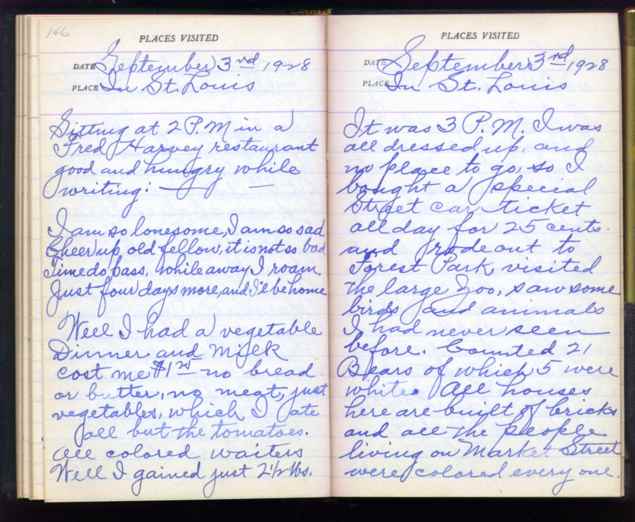 146
PLACES VISITED
DATE September 3rd 1928
PLACE In St. Louis
Sitting at 2 P.M in a
Fred Harvey restaurant
good and hungry while
writing: —
I am so lonesome, I am so sad
Cheer up, old fellow, it is not so bad
Time do pass, while away I roam
Just four days more, and I'll be home
Well I had a vegetable
Dinner and milk
cost me $1.00 no bread
or butter, no meat, just
vegetables, which I ate
all but the tomatoes.
all colored waiters
Well I gained just 2 1/2 lbs.
PLACES VISITED
DATE September 3rd, 1928
PLACE In St. Louis
It was 3 P.M. I was
all dressed up, and
no place to go, so I
bought a special
Street car ticket
all day for 25 cents.
and rode out to
Forest Park, visited
the large Zoo, saw some
birds and animals
I had never seen
before. Counted 21
Bears of which 5 were
white. All houses
here are built of bricks
and all the people
living on Market Street
were colored every one.